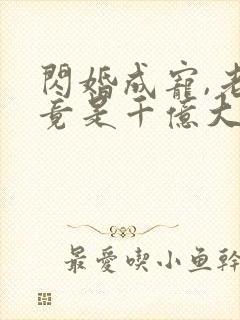 閃婚成寵,老
竟是千億大
最愛喫小鱼幹